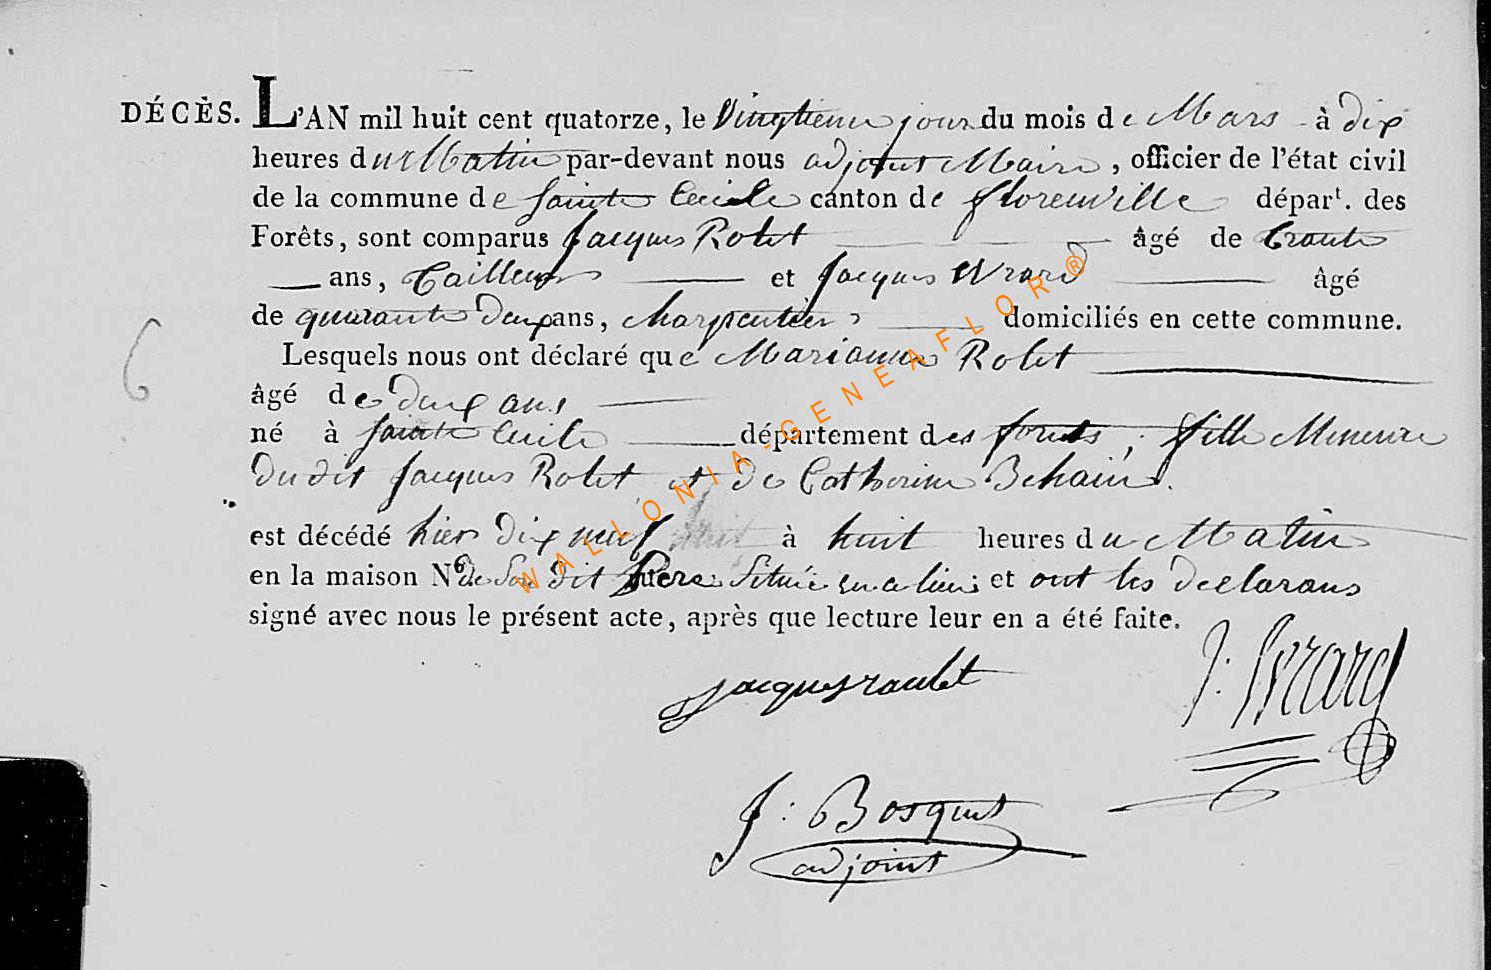 DÉCÈS. L'AN mil huit cent quatorze, le Vingtieme jour du mois de Mars à dix
heures du Matin par-devant nous adjoint Maire, officier de l'état civil
de la commune de Sainte Cecile canton de florenville départ. des
Forêts, sont comparus Jacques Rolet âgé de trente
ans, Tailleur et Jacques Evrard âgé
de quarante deux ans, charpentier, domiciliés en cette commune.
Lesquels nous ont déclaré que Marianne Rolet
âgé de deux ans
né à Sainte Cecile département des forets, fille Mineure
du dit Jacques Rolet et de Catherine Behain.
est décédé hier dix neuf à huit heures du Matin
en la maison N° de Son dit Pere Située en ce lieu; et ont les declarans
signé avec nous le présent acte, après que lecture leur en a été faite.
6
jacques raulet
J: Evrard
J: Bosquet
adjoint
WALLONIA-GENEAFLOR®